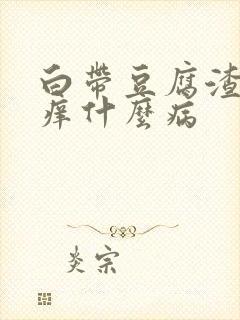 白帶豆腐渣
痒什麼病
炎宗